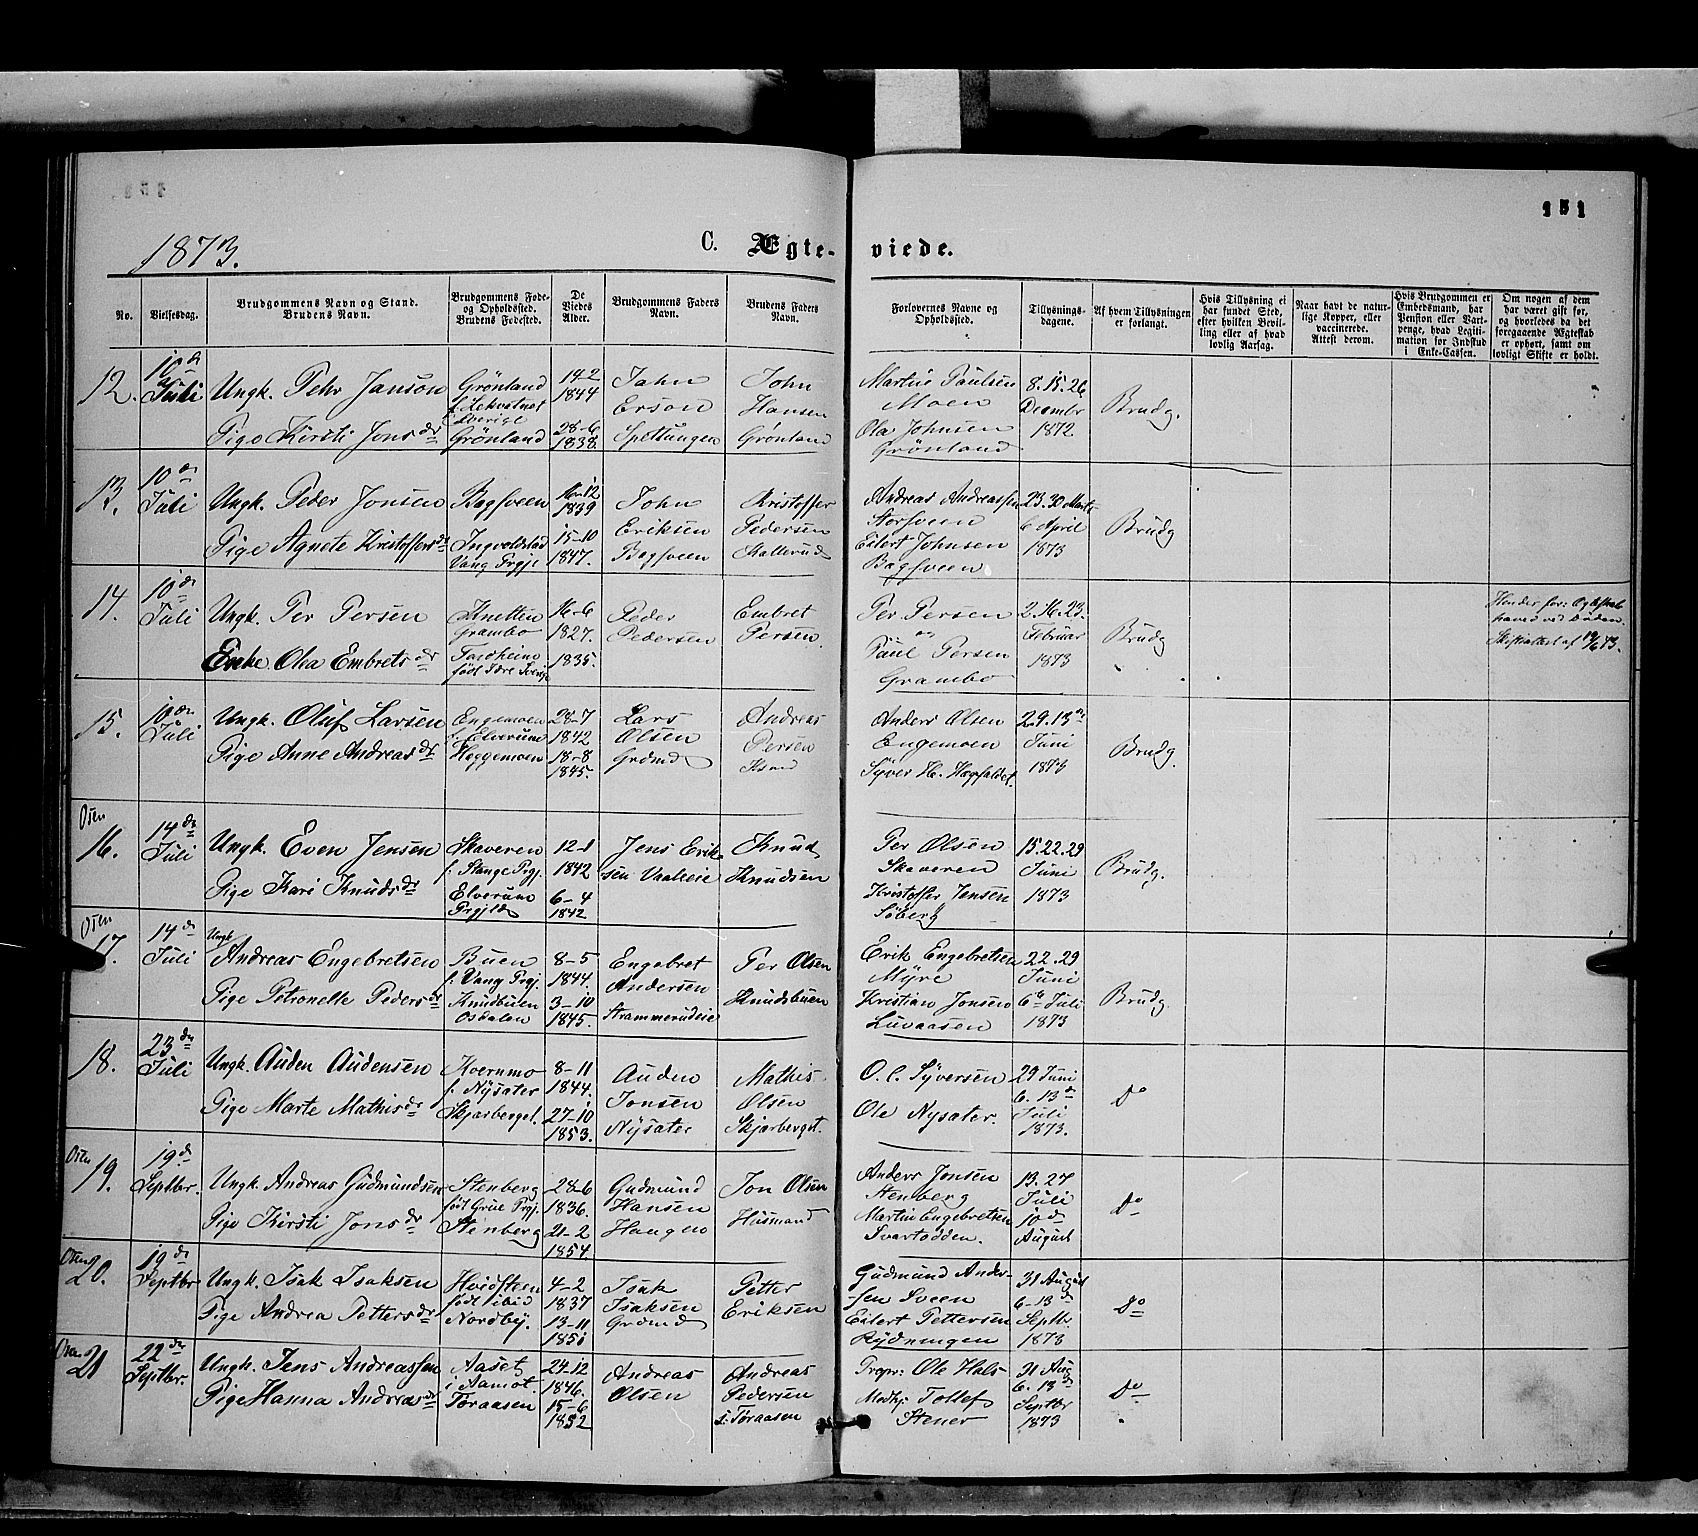 151
1873.
C. Ægte-viede.
No.
Vielsesdag.
Brudgommens Navn og Stand.
Brudens Navn.
Brudgommens Føde-
og Opholdssted.
Brudens Fødested.
De
Viedes
Alder.
Brudgommens Faders
Navn.
Brudens Faders
Navn.
Forlovernes Navne og
Opholdssted.
Tillysnings-
dagene.
Af hvem Tillysningen
er forlangt.
Hvis Tillysning ei
har fundet Sted,
efter hvilken Bevil-
ling eller af hvad
lovlig Aarsag.
Naar havt de natur-
lige Kopper, eller
vaccinerede.
Attest derom.
Hvis Brudgommen er
Embedsmand, har
Pension eller Vart-
penge, hvad Legiti-
mation for Indskud
i Enke-Cassen.
Om nogen af dem
har været gift før,
og hvorledes da det
foregaaende Ægteskab
er ophørt, samt om
lovligt Skifte er holdt.
12.
10de
Juli
Ungk. Pehr Janson
Pige Kirsti Jonsdr
Grönland
f. Lekvatnet
Sverige
Grönland
14-2
1844
28-6
1838
Jahn
Erson
Spettungen
John
Hansen
Grönland
Martin Paulsen
Moen
Ola Johnsen
Grönland
8. 15. 26
Decembr
1872
Brudg.
13.
10de
Juli
Ungk. Peder Jonsen
Pige Agnete Kristoffersdr
Bagsveen
Ingvoldstad
Vang Prgje
16-12
1839
15-10
1847.
John
Eriksen
Bagsveen
Kristoffer
Pedersen
Kallerud
Andreas Andreassen
Aorsveen
Eilert Johnsen
Bagsveen
23. 30 Marts
6 April
1873
Brudg
14.
10de
Juli
Ungk. Per Persen
Enke Olea Embretsdr
Knetten
Grambo
Tardheim
født Idre Sverige
16-6
1827.
1835.
Peder
Pedersen
Embret
Persen
Per Persen
og
Paul Persen
Grambo
2. 16. 23.
Februar
1873
Brudg
Hendes for: Ægteskab
hæved ved Døden.
Skifteattest af 19/6 73.
15.
10de
Juli
Ungk. Oluf Larsen
Pige Anne Andreasdr
Engemoen
f. Elverum
Heggemoen
28-7
1842
18-8
1845.
Lars
Olsen
Grømd
Andreas
Persen
Anders Olsen
Engemoen
Syver H. Hagfaldet.
2. 9. 13de
Juni
1873
Brudg.
Osen
16.
14de
Juli
Ungk. Even Jensen
Pige Kari Knudsdr
Skaveren
f. Stange Prgj.
Elverum
Prgjld
12-1
1842
6-4
1842
Jens Erik-
sen Vaaleeie
Knud
Knudsen
Per Olsen
Skaveren
Kristoffer Jensen
Söberg
15. 22. 29
Juni
1873
Brudg.
Osen
17.
14de
Juli
Ungk
Andreas Engebretsen
Pige Petronelle Pedersdr
Buen
f. Vang Prgj.
Knudbuen
Osdalen
8-5
1844.
3-10
1845.
Engebret
Andersen
Strammerudeie
Per Olsen
Knudsbuen
Erik Engebretsen
Myre
Kristian Jonsen
Luvaasen
22. 29
Juni
6te Juli
1873
Brudg.
18.
23de
Juli
Ungk. Auden Audensen
Pige Marte Mathisdr
Kvernmo
f. Nysater
Skjærberget.
8-11
1844.
27-10
1853.
Auden
Jonsen
Nysater
Mathis
Olsen
Skjærberget.
O. C. Syversen
Ole Nysater.
29 Juni
6. 13de
Juli
1873.
Do
Osen
19.
19de
Septbr.
Ungk. Andreas Gudmundsen
Pige Kirsti Jonsdr
Stenberg
født Grue Prgj.
Stenberg
28-6
1836.
21-2
1854
Gudmund
Hansen
Haugen
Jon Olsen
Husmand
Anders Jonsen
Stenberg
Martin Engebretsen
Svartodden.
13. 27
Juli
10de
August
Do
Osen
20.
19de
Septbr
Ungk. Isak Isaksen
Pige Andrea Pettersdr
Hvidsteen
født ibid
Nordby.
4-2
1837
13-11
1851
Isak
Isaksen
Grømd
Petter
Eriksen
Gudmund Ander-
sen Sveen
Eilert Pettersen
Rydningen
31 August
6-13de
Septbr.
1873
Do
Osen
21
22de
Septbr.
Ungk. Jens Andreassen
Pige Hanna Andreasdr
Aaset
i Aamot.
Töraasen
24-12
1846.
15-6
1852
Andreas
Olsen
Andreas
Pedersen
i Töraasen
Propr: Ole Hals
Medhj: Tollef
Stener
31 Aug
6. 13de
Septbr
1873
Do